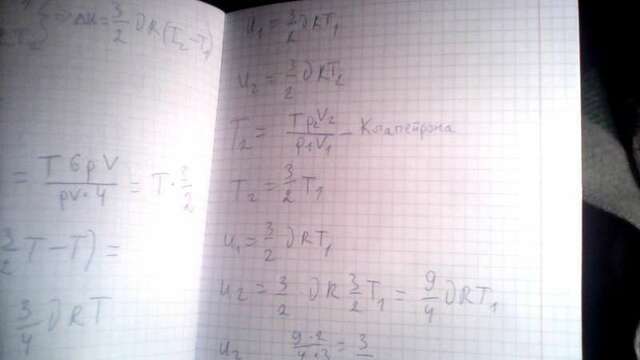 => ΔU = 3/2 ∂R(T₂ - T₁)
= T 6 p V / pV · 4 = T · 3/2
3/2 T - T) =
3/4 ∂RT
U₁ = 3/2 ∂RT₁
U₂ = 3/2 ∂RT₂
T₂ = T p₂V₂ / p₁V₁ - Клапейрона
T₂ = 3/2 T₁
U₁ = 3/2 ∂RT₁
U₂ = 3/2 · ∂R 3/2 T₁ = 9/4 ∂RT₁
U₂ 9 · 2 / 4 · 3 = 3